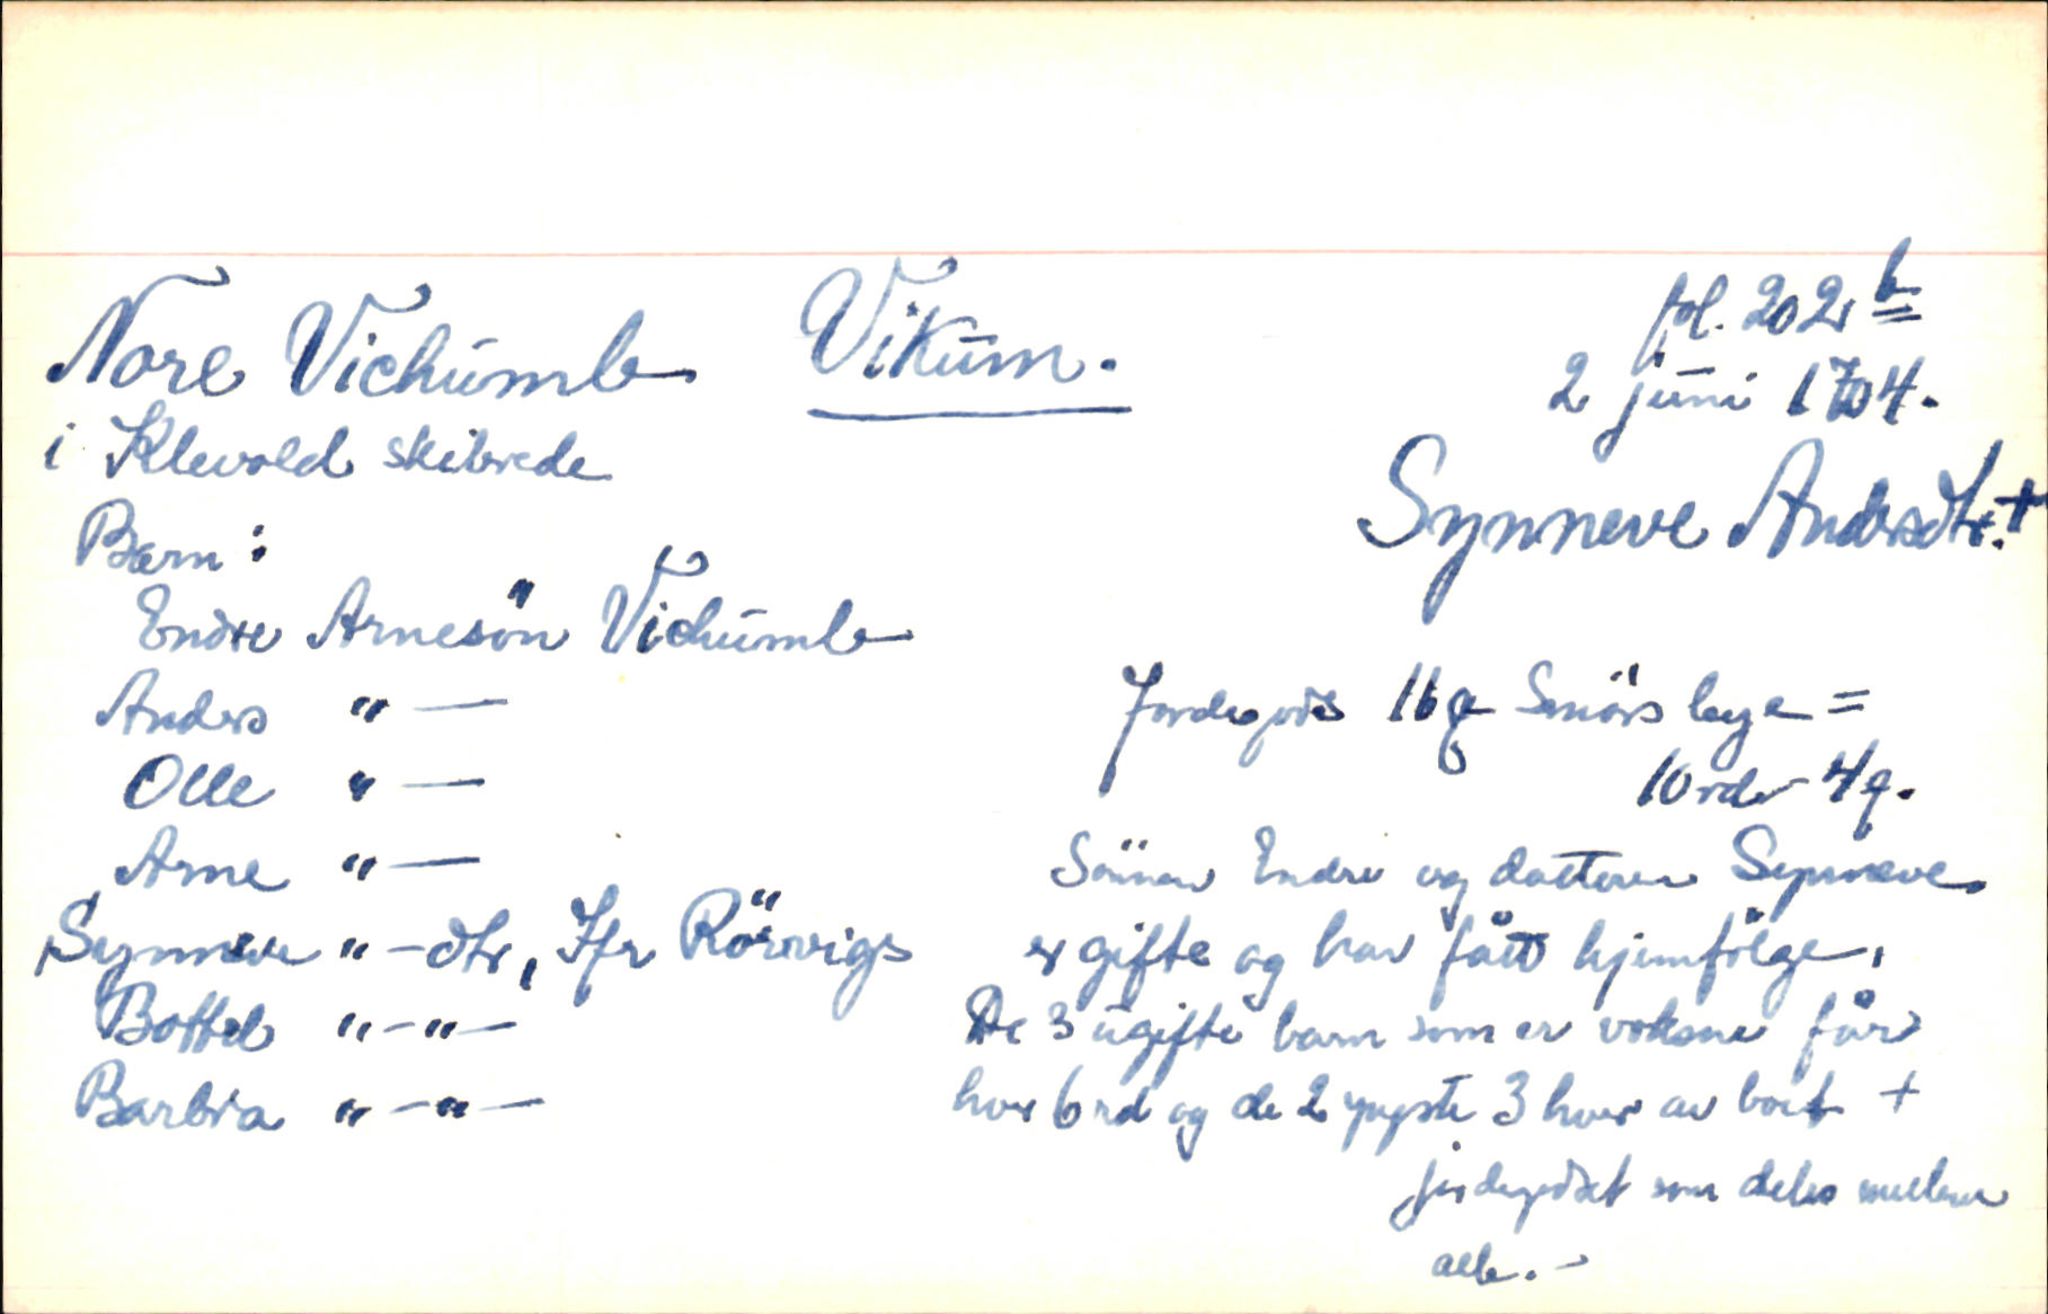 Nore Vichumb Vikum. fol. 202 b
2 juni 1704.
i Klevold skibrede
Synneve Andersdtr. +
Barn:
Endre Arnesön Vichumb
Anders " —
Olle " —
Arne " —
Synneve " - dtr, Ifr Rörvigs
Bottel " - " -
Barbra " - " -
Jordegods Smörs leye =
10 rdr 4 q.
Sönnen Endre og datteren Synneve
er gifte og har fått hjemfölge,
De 3 ugifte barn som er voksne får
hver 6 rd og de 2 yngste 3 hver av boet +
jordegodset som deles mellem
alle. -